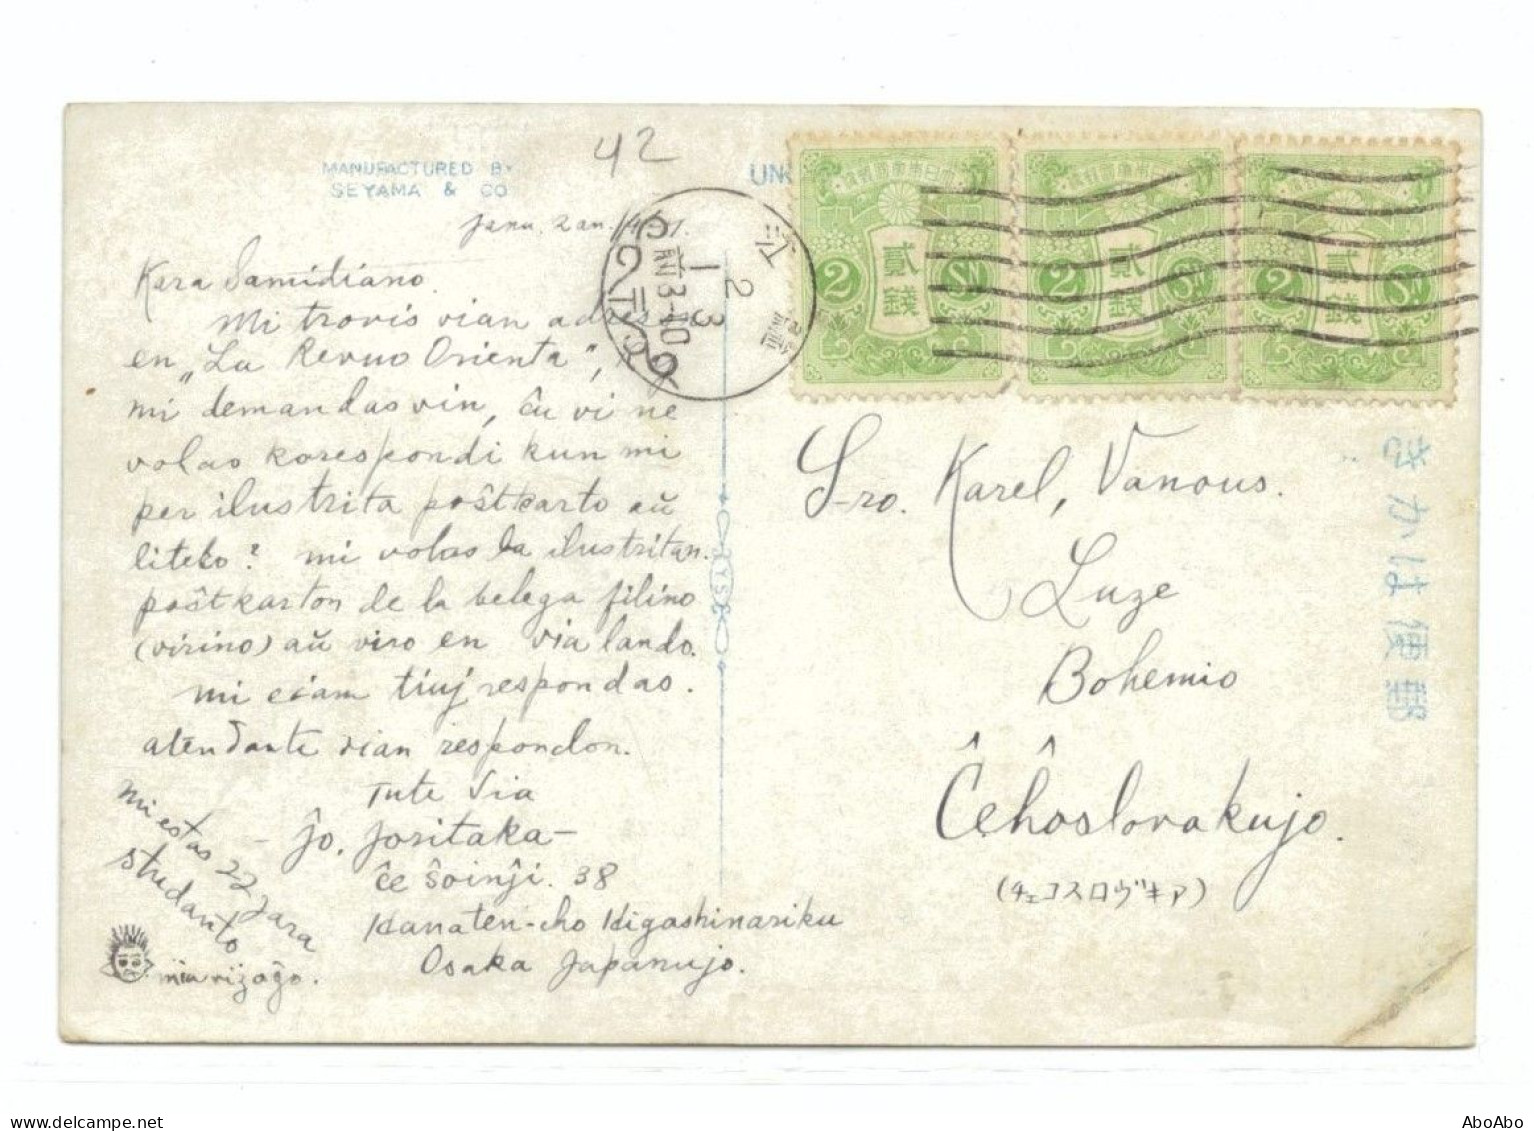 42
MANUFACTURED BY
SEYAMA & CO
UNI
Janu. 2an.
Kara Samidiano.
Mi trovis vian adreson
en „La Revuo Orienta",
mi demandas vin, ĉu vi ne
volas korespondi kun mi
per ilustrita poŝtkarto aŭ
litelo? mi volas la ilustritan.
poŝtkarton de la belega filino
(virino) aŭ viro en via lando.
mi ciam tiuj respondas.
atendante vian respondon.
Tute Via
- Ĵo. Joritaka -
ĉe ŝoinĵi. 38
Kanaten-cho Higashinariku
Osaka Japanujo.
mi estas 22 jara
studanto
mia vizaĝo.
貳錢
2 SN
貳錢
2 SN
貳錢
2 SN
S-ro. Karel, Vanous.
Luze
Bohemio
Ĉeĥoslovakujo.
(チェコスロヴキア)
郵便はかき
AboAbo
delcampe.net